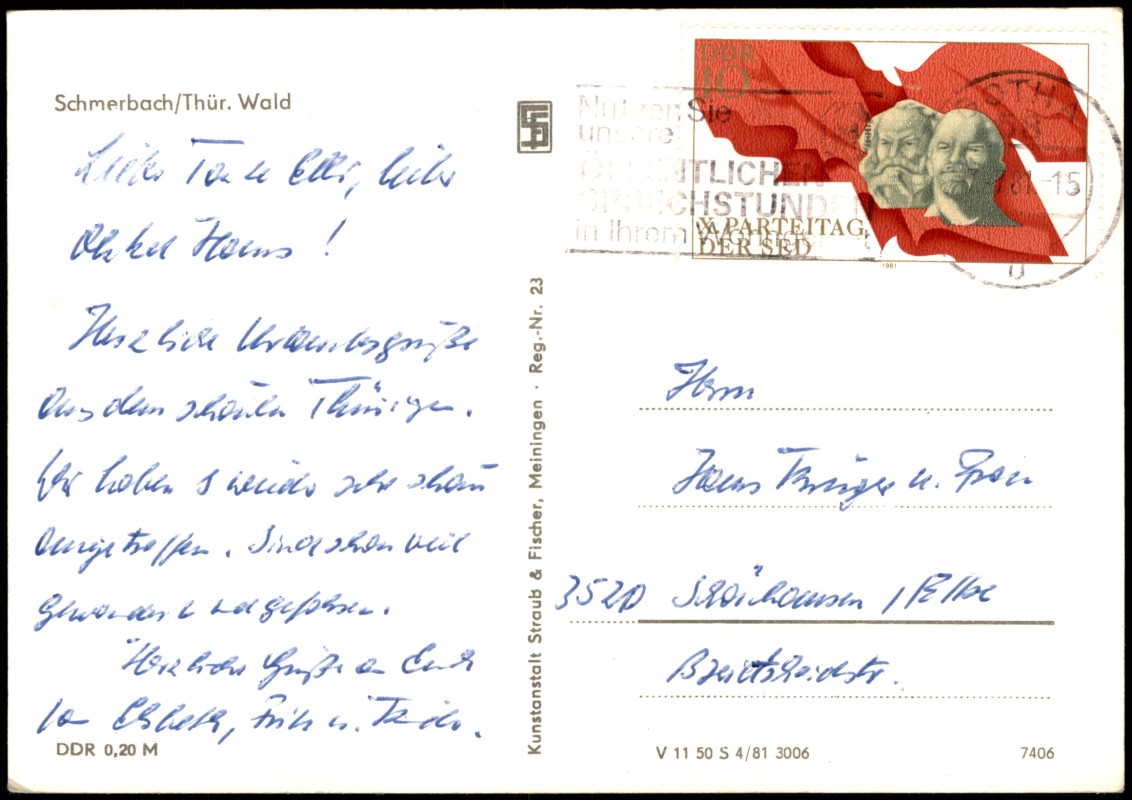 Schmerbach/Thür. Wald
Liebe Tante Elli, lieber
Onkel Hans!
Herzliche Urlaubsgrüße
aus dem schönen Thüringen.
Wir haben es wieder sehr schön
angetroffen. Sind schon viel
gewandert und gefahren.
Herzliche Grüße an Euch
von Elsbeth, Fritz u.
DDR 0,20 M
Kunstanstalt Straub & Fischer, Meiningen · Reg.-Nr. 23
DDR
10
X. PARTEITAG
DER SED
1981
Nutzen Sie
unsere
ÖFFENTLICHEN
SPRECHSTUNDEN
in Ihrem
GOTHA
81-15
Herrn
Hans Krüger u. Frau
3520 Schönhausen / Elbe
Breitscheidstr.
V 11 50 S 4/81 3006
7406